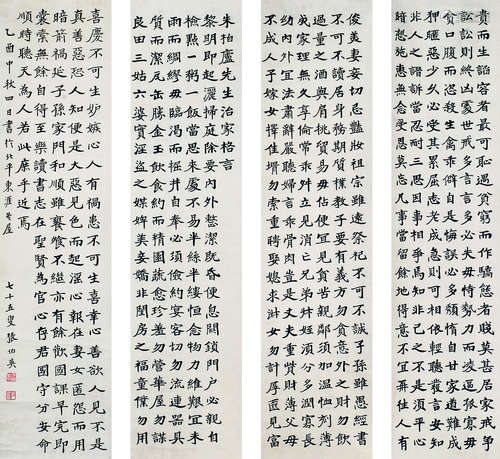 朱柏廬先生治家格言
黎明即起灑掃庭除要內外整潔既昏便息關鎖門戶必親自
檢點一粥一飯當思來處不易半絲半縷恆念物力維艱宜未
雨而綢繆毋臨渴而掘井自奉必須儉約宴客切勿流連器具
質而潔瓦缶勝金玉飲食約而精園蔬愈珍羞勿營華屋勿謀
良田三姑六婆實淫盜之媒婢美妾嬌非閨房之福童僕勿用
俊美妻妾忌豔妝祖宗雖遠祭祀不可不誠子孫雖愚經書
不可不讀居身務期質樸教子要有義方勿貪意外之財勿飲
過量之酒與肩挑貿易毋佔便宜見貧苦親鄰須加溫恤刻薄
成家理無久享倫常乖舛立見消亡兄弟叔姪須分多潤寡長
幼內外宜法肅辭嚴聽婦言乖骨肉豈是丈夫重貲財薄父母
不成人子嫁女擇佳壻勿索重聘娶媳求淑女勿計厚奩見富
貴而生諂容者最可恥遇貧窮而作驕態者賤莫甚居家戒爭
訟訟則終凶處世戒多言言多必失毋恃勢力而凌逼孤寡毋
貪口腹而恣殺生禽乖僻自是悔誤必多頹惰自甘家道難成
狎暱惡少久必受其累屈志老成急則可相依輕聽發言安知
非人之譖訴當忍耐三思因事相爭安知非我之不是須平心
暗想施惠無念受恩莫忘凡事當留餘地得意不宜再往人有
喜慶不可生妒嫉心人有禍患不可生喜幸心善欲人見不是
真善惡恐人知便是大惡見色而起淫心報在妻女匿怨而用
暗箭禍延子孫家門和順雖饔飧不繼亦有餘歡國課早完即
囊橐無餘自得至樂讀書志在聖賢為官心存君國守分安命
順時聽天為人若此庶乎近焉
乙酉中秋四日書於北平東涯老屋
七十五叟張伯英